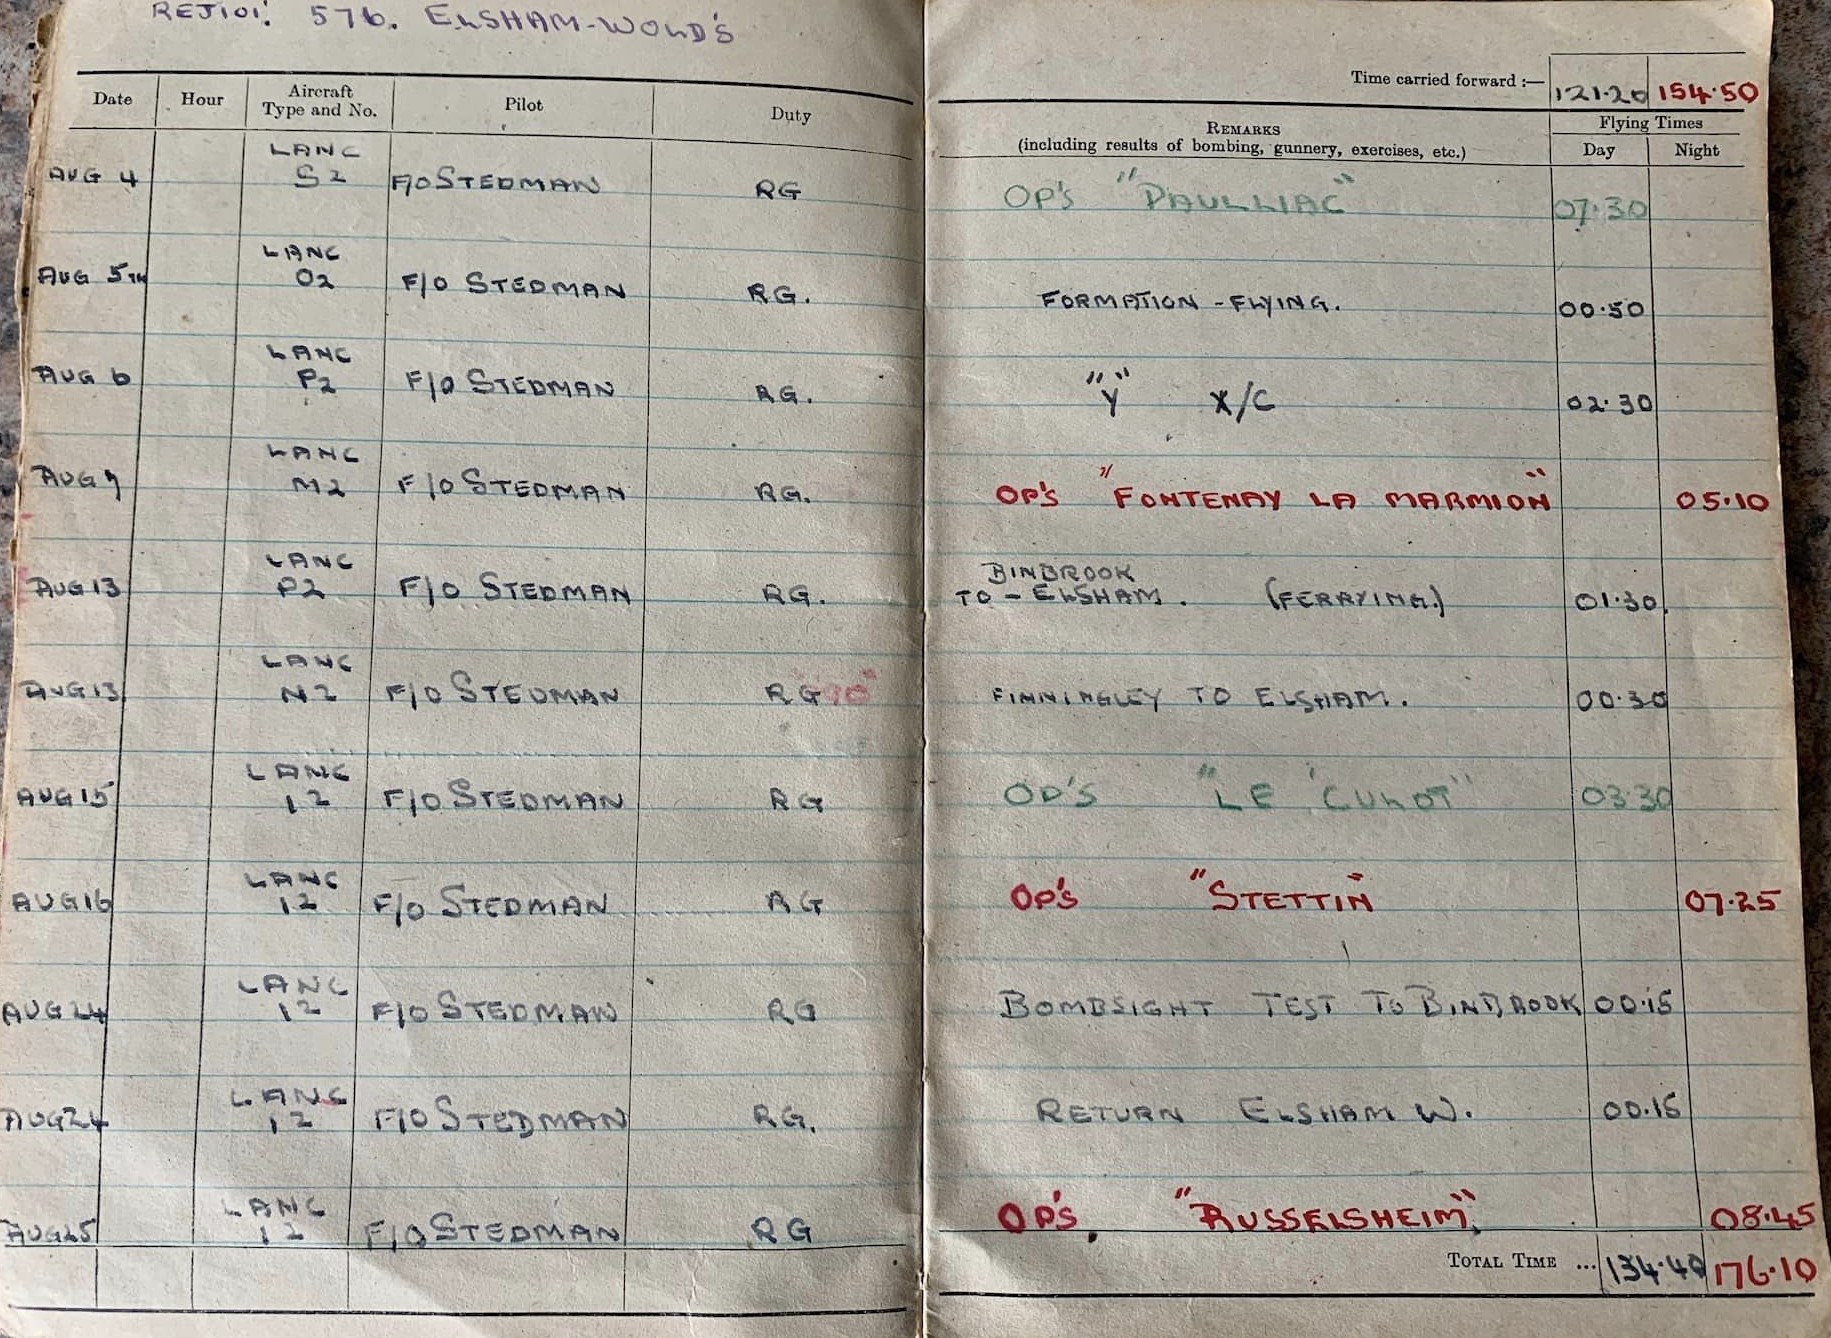 576. ELSHAM-WOLD'S
Time carried forward :— 121·20 154·50
Date Hour Aircraft Type and No. Pilot Duty REMARKS (including results of bombing, gunnery, exercises, etc.) Flying Times Day Night
AUG 4 LANC S2 F/O STEDMAN RG OP'S "PAULLIAC" 07·30
AUG 5TH LANC O2 F/O STEDMAN RG. FORMATION - FLYING. 00·50
AUG 6 LANC P2 F/O STEDMAN RG. "Y" X/C 02·30
AUG 7 LANC M2 F/O STEDMAN RG. OP'S "FONTENAY LA MARMION" 05·10
AUG 13 LANC P2 F/O STEDMAN RG. BINBROOK TO - ELSHAM. (FERRYING.) 01·30.
AUG 13 LANC N2 F/O STEDMAN RG FINNINGLEY TO ELSHAM. 00·30
AUG 15 LANC I2 F/O STEDMAN RG OP'S "LE 'CULOT" 03·30
AUG 16 LANC I2 F/O STEDMAN RG OP'S "STETTIN" 07·25
AUG 24 LANC I2 F/O STEDMAN RG BOMBSIGHT TEST TO BINBROOK 00·15
AUG 24 LANC I2 F/O STEDMAN RG. RETURN ELSHAM W. 00.15
AUG 25 LANC I2 F/O STEDMAN RG OP'S "RUSSELSHEIM" 08·45
TOTAL TIME ... 134·40 176·10